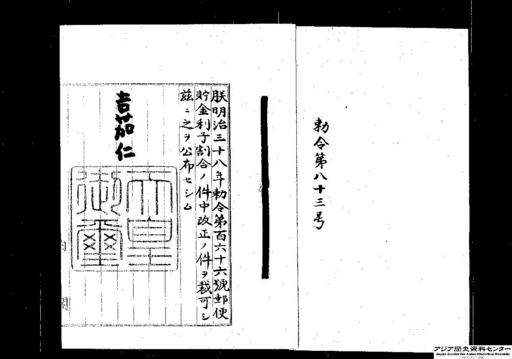 勅令第八十三号
朕明治三十八年勅令第百六十六號郵便
貯金利子割合ノ件中改正ノ件ヲ裁可シ
茲ニ之ヲ公布セシム
嘉仁
天皇
御璽
アジア歴史資料センター
Japan Center for Asian Historical Records